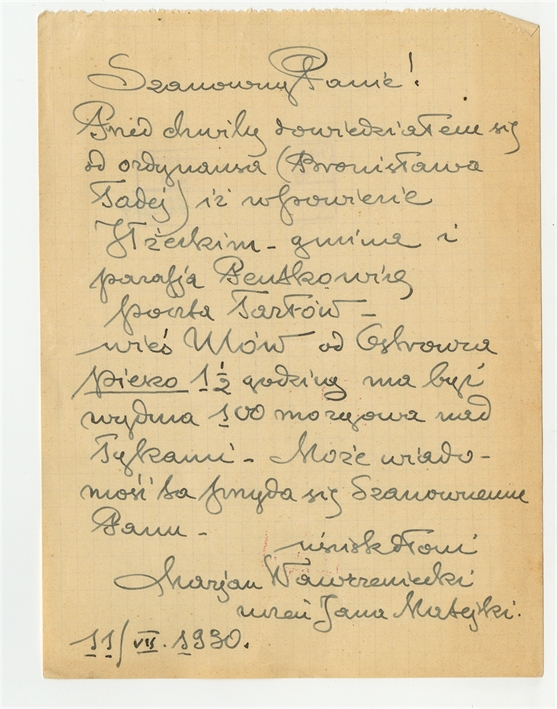 Szanowny Panie!
Przed chwilą dowiedziałem się
od ordynansa (Bronisława
Tadej) iż w powiecie
Iłżeckim - gmina i
parafja Pentkowice
poczta Tarłów -
wieś Ulów od Ostrowca
pieszo 1½ godziny ma być
wydma 100 morgowa nad
łykami - Może wiado-
mość ta przyda się Szanownemu
Panu -
uścisk dłoni
Marjan Wawrzeniecki
uczeń Jana Matejki.
11/VII. 1930.